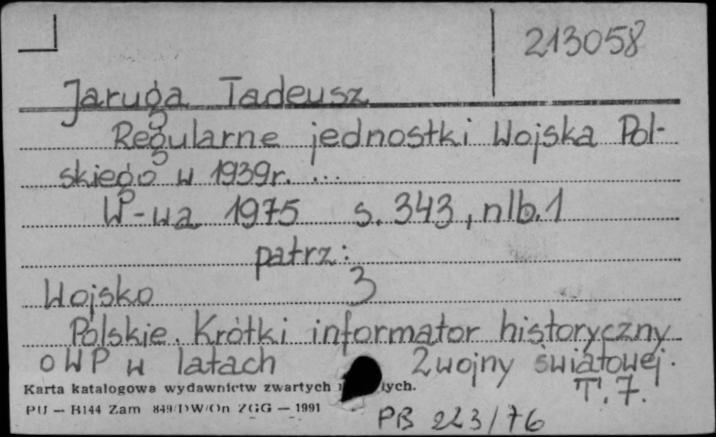 213058
Jaruga Tadeusz
Regularne jednostki Wojska Pol-
skiego w 1939r. ...
W-wa 1975 s. 343, nlb. 1
patrz:
Wojsko 3
Polskie. Krótki informator historyczny
o WP w latach 2 wojny światowej.
T. 7.
Karta katalogowa wydawnictw zwartych
PU — B144 Zam 849/DW/On ZGG — 1991
PB 223/76